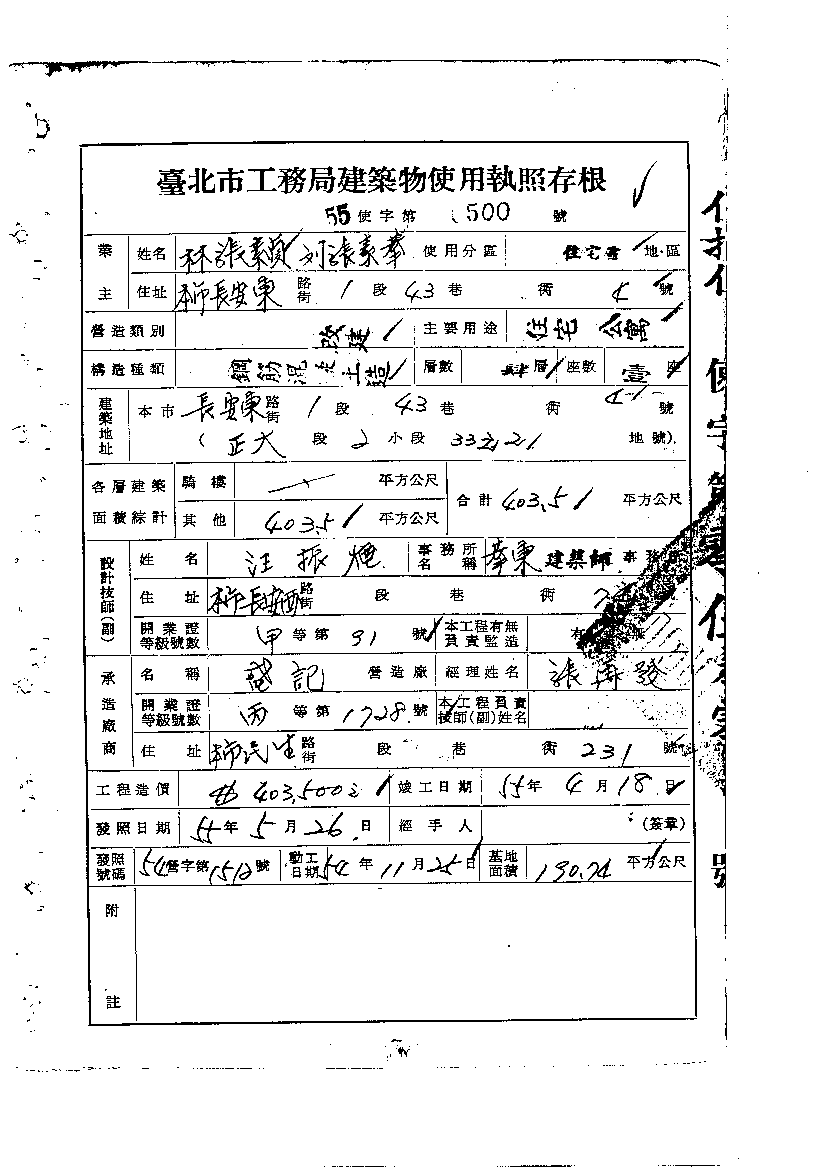 臺北市工務局建築物使用執照存根
55使字第 500 號
業主 姓名 林張素貞 劉張素華 使用分區 住宅 地·區
住址 本市長安東路街 1 段 43 巷 衖 4 號
營造類別 改建 主要用途 住宅 公寓
構造種類 鋼筋混凝土造 層數 肆層 座數 壹座
建築地址 本市 長安東路街 1 段 43 巷 衖 4-1 號
( 正大 段 2 小段 33之21 地號)
各層建築面積綜計 騎樓 平方公尺 合計 403.51 平方公尺
其他 403.51 平方公尺
設計技師(副) 姓名 汪振 事務所名稱 華東建築師事務
住址 本市長安西路街 段 巷 衖
開業證等級號數 甲等第 91 號 本工程有無負責監造 有
承造廠商 名稱 記 營造廠 經理姓名 張再發
開業證等級號數 丙等第 1728 號 本工程負責技師(副)姓名
住址 本市民生路街 段 巷 衖 231 號
工程造價 403,500元 竣工日期 55年 4月18日
發照日期 55年5月26日 經手人 (簽章)
發照號碼 54營字第1512號 動工日期 54年11月25日 基地面積 190.74 平方公尺
附註
使字第
號